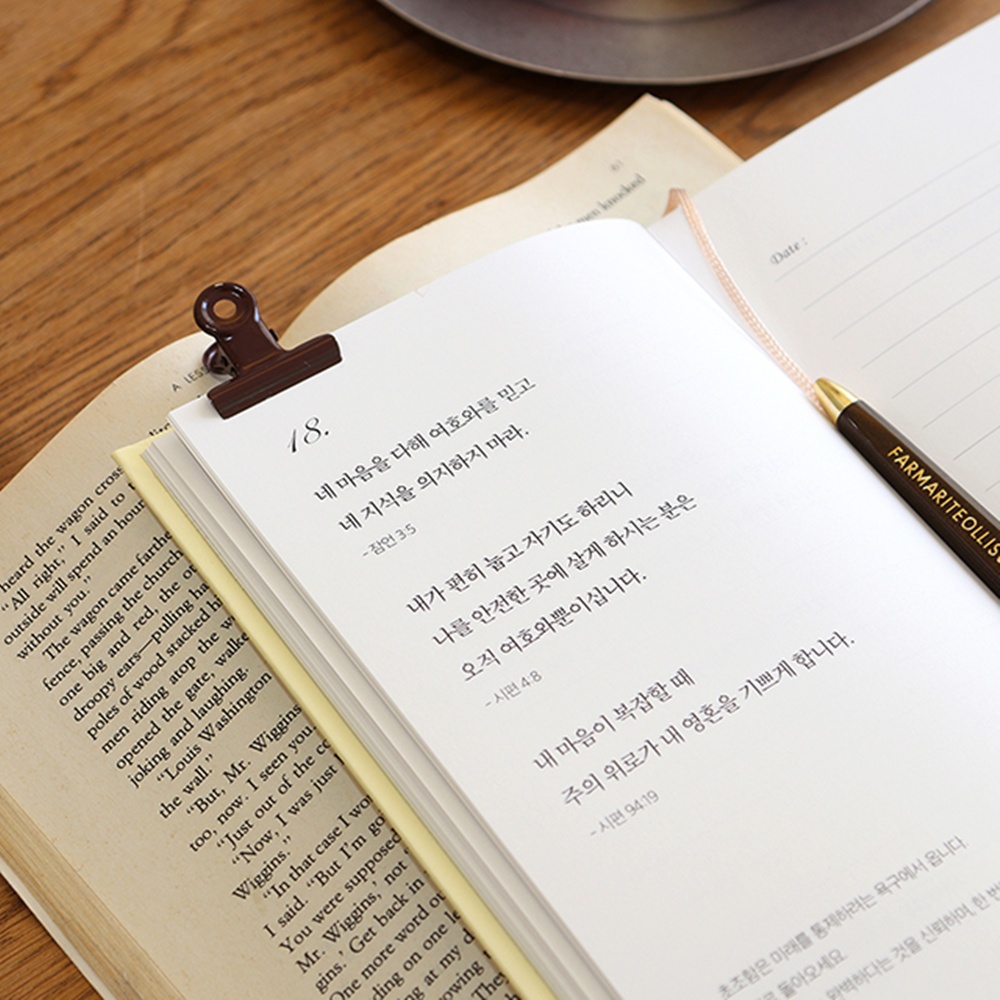 18.
네 마음을 다해 여호와를 믿고
네 지식을 의지하지 마라.
- 잠언 3:5
내가 편히 눕고 자기도 하리니
나를 안전한 곳에 살게 하시는 분은
오직 여호와뿐이십니다.
- 시편 4:8
내 마음이 복잡할 때
주의 위로가 내 영혼을 기쁘게 합니다.
- 시편 94:19
초조함은 미래를 통제하려는 욕구에서 옵니다
돌아오세요.
완벽하다는 것을 신뢰하며, 한
Date :
FARMARITEOLLIS
61
men knocked
A LESS
heard the wagon cross
"All right," I said to
outside will spend an hour
without you."
The wagon came farthe
fence, passing the church
one big and red, the o
droopy ears—pulling h
poles of wood stacked h
men riding atop the w
opened the gate, walke
joking and laughing.
"Louis Washington
the wall."
"But, Mr. Wiggins
too, now. I seen you
"Just out of the co
"Now, I was just
Wiggins."
"In that case I wo
I said. "But I'm go
You were supposed
Mr. Wiggins,' not
gins.' Get back in
One more word ou
ding on one le
ng at my d
owing